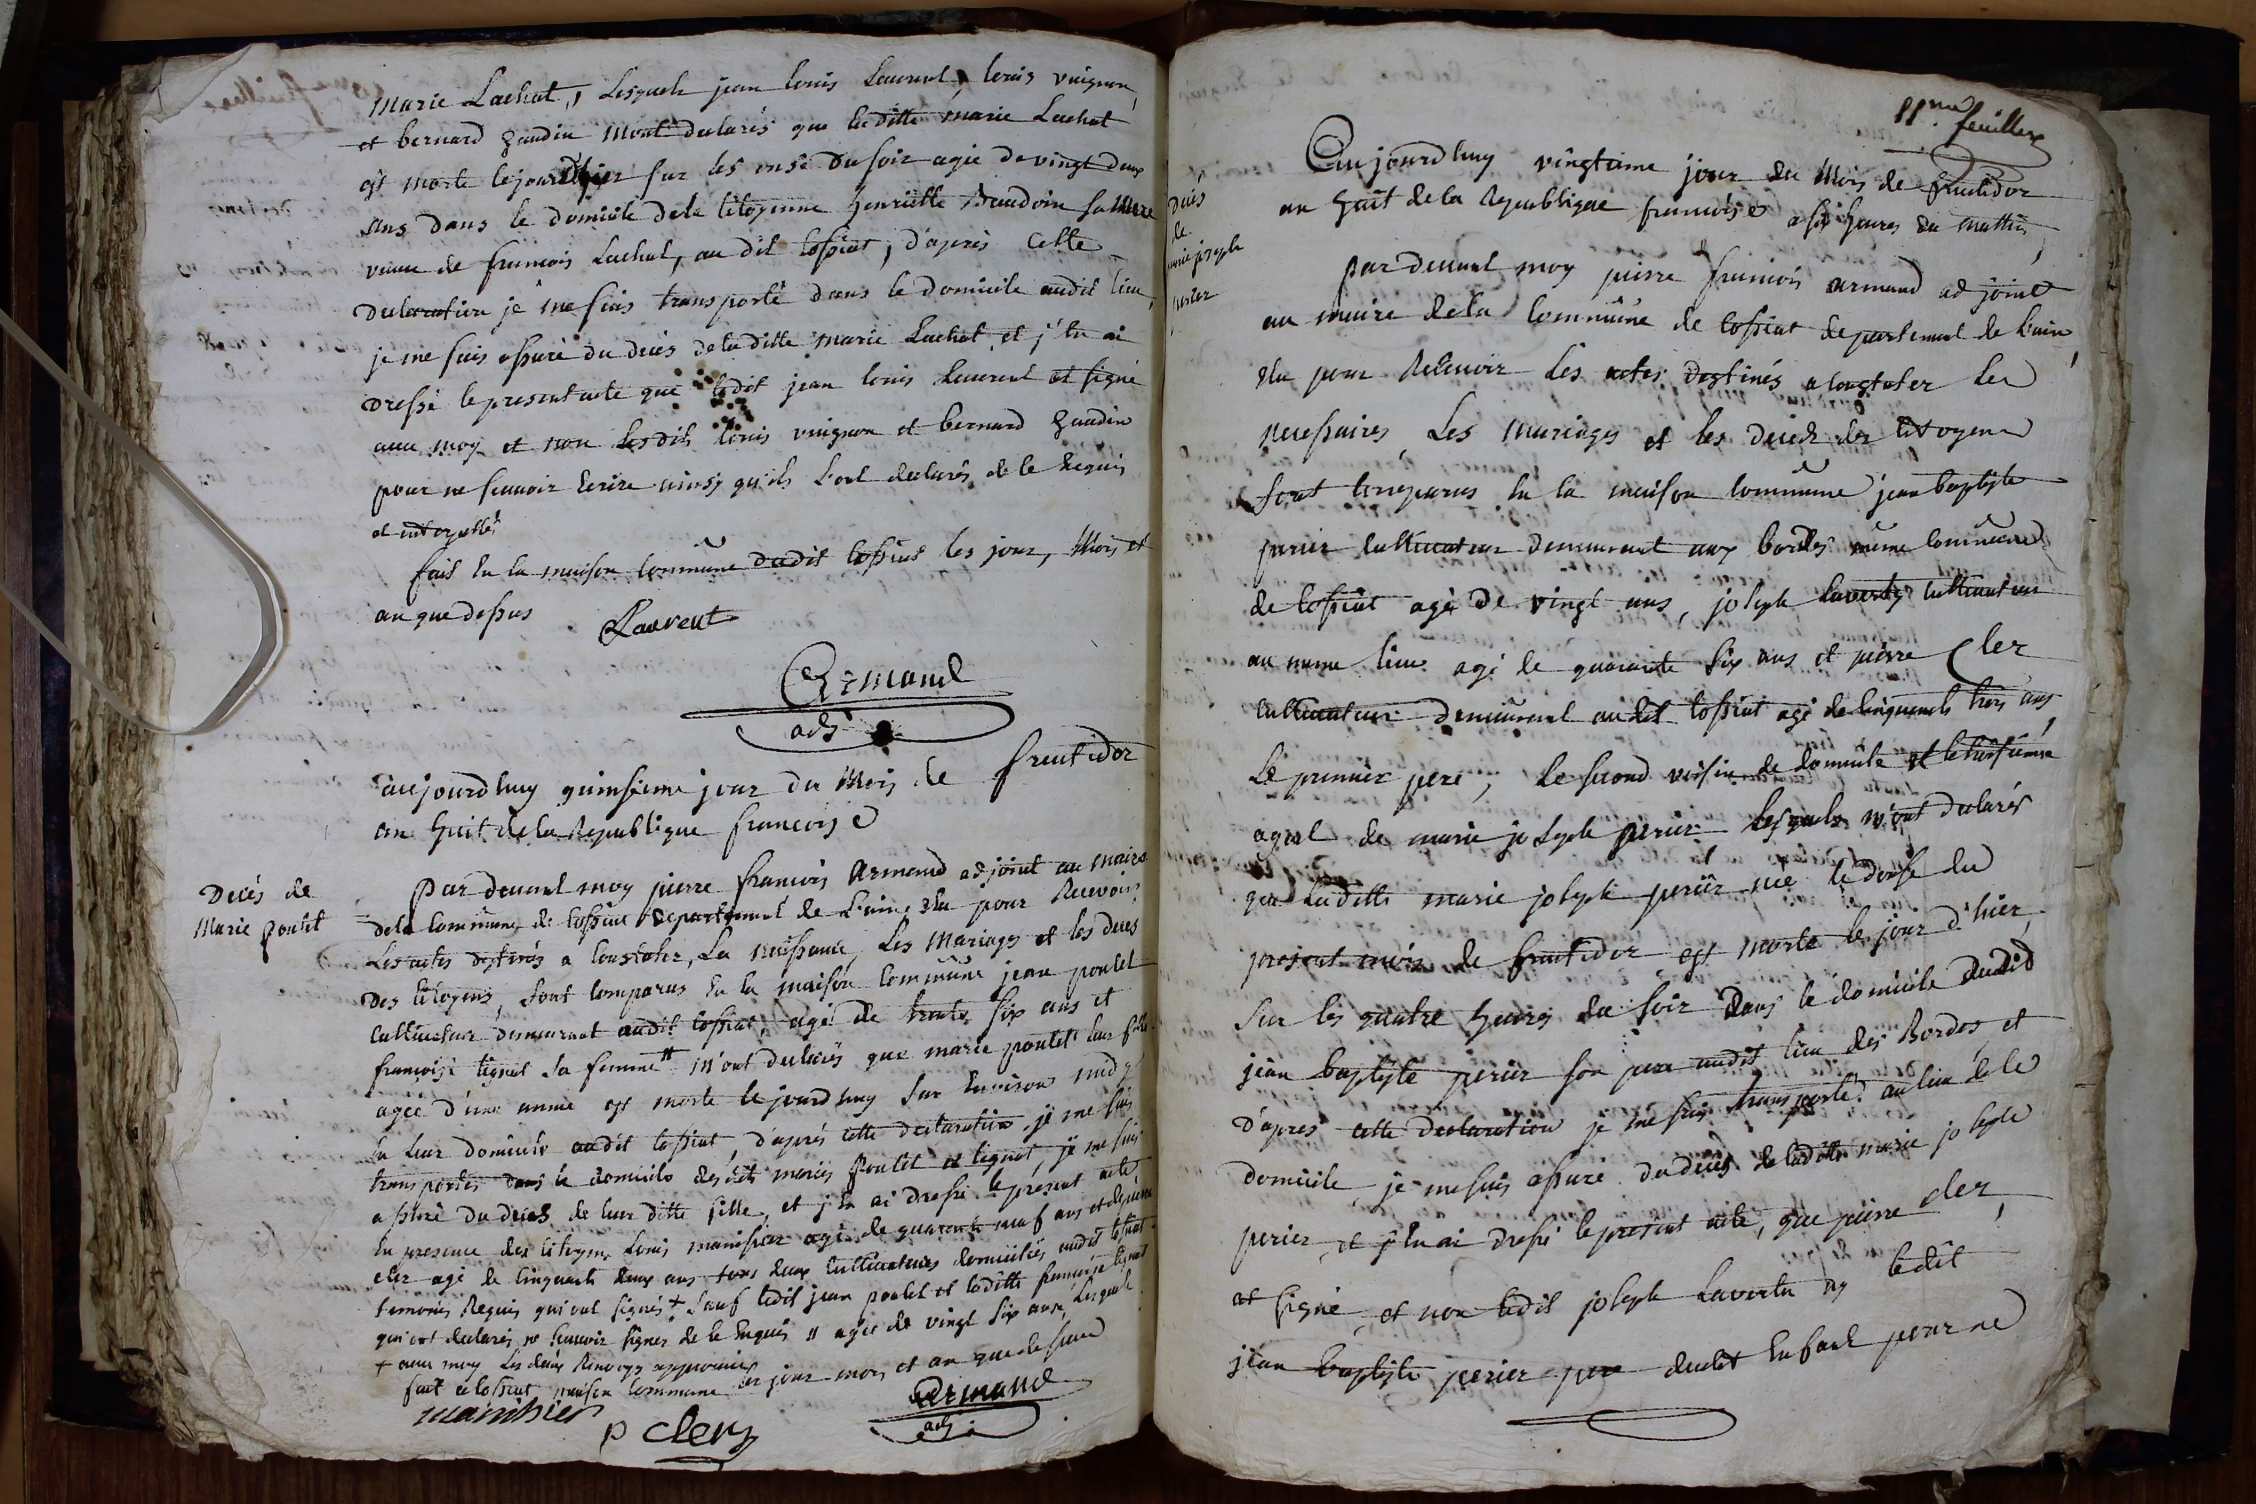 Marie Lachat, Lesquels jean louis Laurent, louis vuignon,
et bernard gaudin m'ont declarés que laditte marie Lachat
est morte le jour d'hier sur les onse du soir agée de vingt deux
ans dans le domicile de la citoyenne henriette Baudoin sa mere
veuve de francois Lachat, au dit cossiat, d'après cette
declaration je me suis transporté dans le domicile audit lieu,
je me suis assuré du décès de laditte marie Lachat et j'en ai
dressé le present acte que ledit jean louis Laurent at signé
avec moy et non lesdits louis vuignon et bernard gaudin
pour ne scavoir Ecrire ainsy qu'ils L'ont declarés de le Requis
et interpellés
fait en la maison commune dudit cossiat les jour, Mois et
an que dessus Laurent
Armand
adj
aujourdhuy quinsieme jour du Mois de fructidor
an huit de la Republique francoise
Decés de
Marie poulet
Par devant moy pierre francois Armand adjoint au maire
de la commune de cossiat departement de L'ain, Elu pour Recevoir
Les actes destinés a constater, La naissance, Les Mariages et les deces
des citoyens, sont comparus en la maison commune jean poulet
cultivateur demeurant audit cossiat, agé de trente six ans et
francoise tignat sa femme # m'ont declarés que marie poulet leur fille
agée d'une année est morte le jourdhuy sur Environ midy
en leur domicile audit cossiat, d'après cette declaration, je me suis
transportés dans le domicile desdits mariés poulet et tignat, je me suis
assuré du deces de leur ditte fille, et j'en ai dressé le present acte
En presence des citoyens Louis manissier agé de quarente neuf ans et de pierre
cler agé de cinquante deux ans tous deux cultivateurs domiciliés audit cossiat
temoins Requis qui ont signés + sauf ledit jean poulet et laditte francoise tignat
qui ont declarés ne scavoir signer de le Enquis # agée de vingt six ans, Lesquels
+ avec moy les deux Renvoys approuvés
fait a cossiat maison commune les jour mois et an que dessus
manissier
p cler
Armand
adj
11.me feuillet
Decés
de
marie joseph
perier
Aujourdhuy vingtieme jour du Mois de fructidor
an huit de la Republique francoise a six heures du matin,
par devant moy pierre francois armand adjoint
au maire de la commune de cossiat departement de L'ain,
Elu pour Recevoir Les actes destinés a constater Les
necessaires, Les mariages et les deces des citoyens
sont comparus en la maison commune jean baptiste
perier cultivateur demeurant aux bordes même commune
de cossiat agé de vingt ans, joseph laverty cultivateur
au meme lieu agé de quarante six ans et pierre Cler
cultivateur demeurant audit cossiat agé de cinquante trois ans,
Le premier pere, le second voisin de domicile et le troisieme
ayeul de marie joseph perier Lesquels m'ont declarés
que laditte marie joseph perier née le douse du
present mois de fructidor est morte le jour d'hier
sur les quatre heures du soir dans le domicile dudid
jean baptiste perier son pere audit lieu des Bordes, et
d'apres cette declaration je me suis transporté au lieu dele
domicile, je me suis assuré du decés de laditte marie joseph
perier, et j'en ai dressé le present acte, que pierre cler,
at signé, et non ledit joseph Laverta ny ledit
jean baptiste perier pere dudit Enfant pour ne